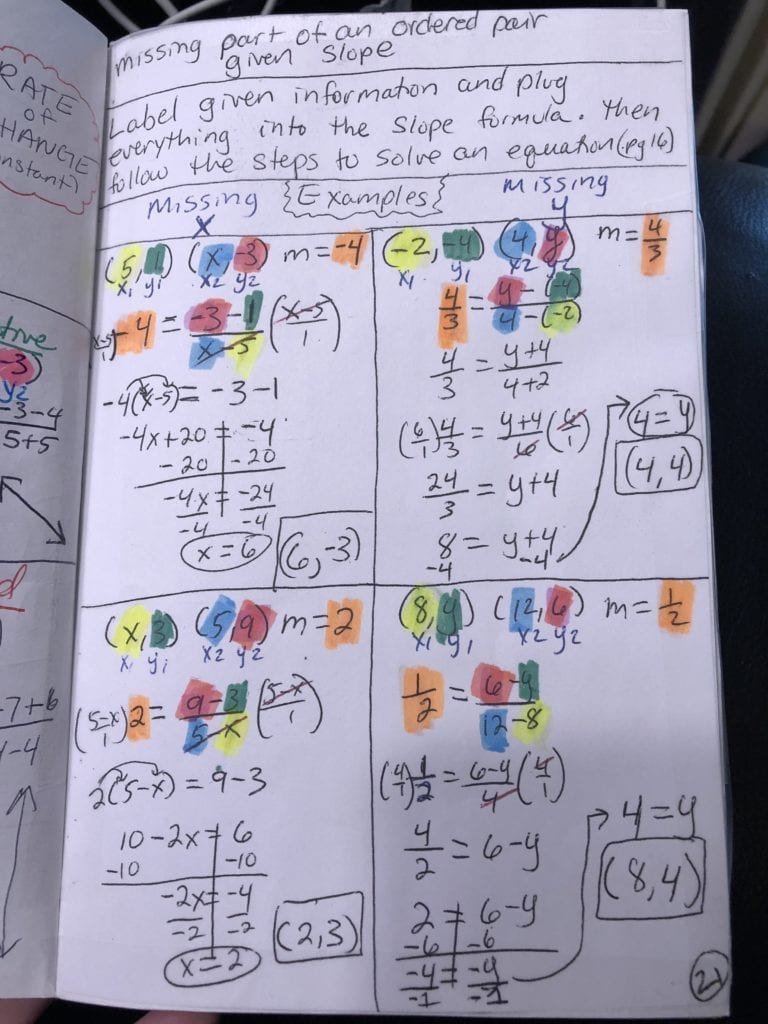 RATE
OF
CHANGE
-3)
y2
-3-4
5+5
-7+6
-4
missing part of an ordered pair
given slope
Label given information and plug
everything into the slope formula. Then
follow the steps to solve an equation (pg 16)
{Examples}
Missing
x
(5,1) (x,-3) m=-4
x1 y1 x2 y2
(x-5)/1 -4 = (-3-1)/(x-5) ((x-5)/1)
-4(x-5) = -3-1
-4x+20 = -4
-20 -20
-4x = -24
-4 -4
x=6
(6,-3)
Missing
y
(-2,-4) (4,y) m=4/3
x1 y1 x2 y2
4/3 = (y-(-4))/(4-(-2))
4/3 = (y+4)/(4+2)
(6/1) 4/3 = (y+4)/6 (6/1)
24/3 = y+4
8 = y+4
-4 -4
4=y
(4,4)
(x,3) (5,9) m=2
x1 y1 x2 y2
((5-x)/1) 2 = (9-3)/(5-x) ((5-x)/1)
2(5-x) = 9-3
10-2x = 6
-10 -10
-2x = -4
-2 -2
x=2
(2,3)
(8,y) (12,6) m=1/2
x1 y1 x2 y2
1/2 = (6-y)/(12-8)
(4/1) 1/2 = (6-y)/4 (4/1)
4/2 = 6-y
2 = 6-y
-6 -6
-4 = -y
-1 -1
4=y
(8,4)